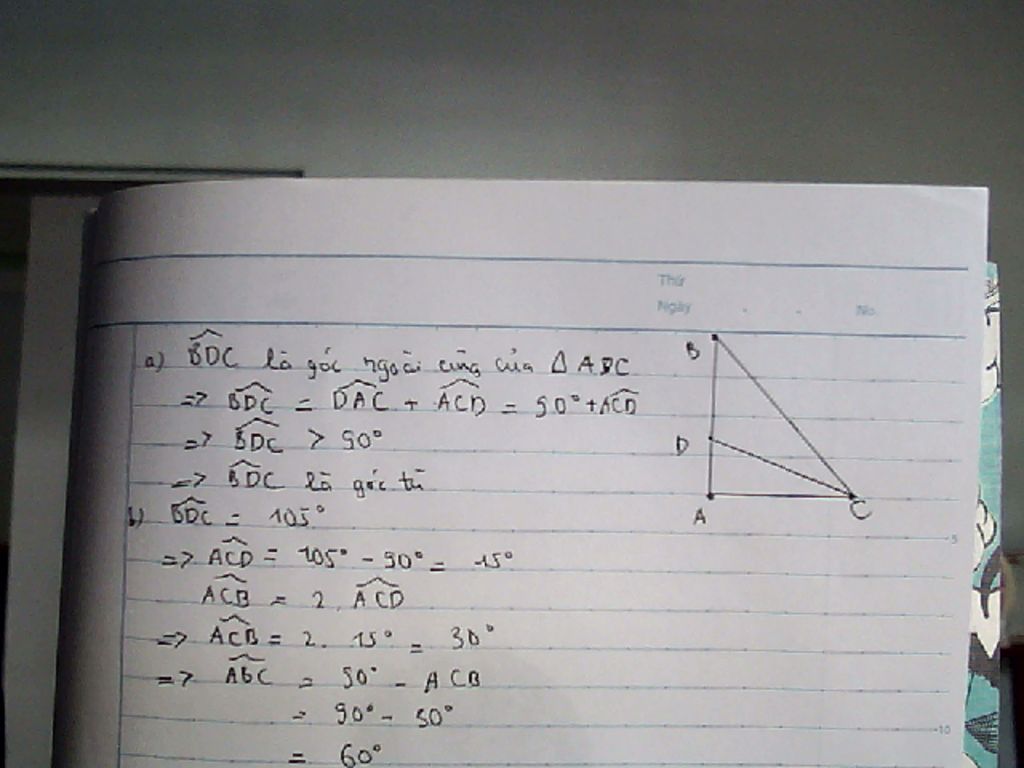 Thứ
Ngày . . No.
a) BDC là góc ngoài cũng của Δ ABC
=> BDC = DAC + ACD = 90° + ACD
=> BDC > 90°
=> BDC là góc tù
b) BDC = 105°
=> ACD = 105° - 90° = 15°
ACB = 2. ACD
=> ACB = 2. 15° = 30°
=> ABC = 90° - ACB
= 90° - 30°
= 60°
B
D
A
C
5
10